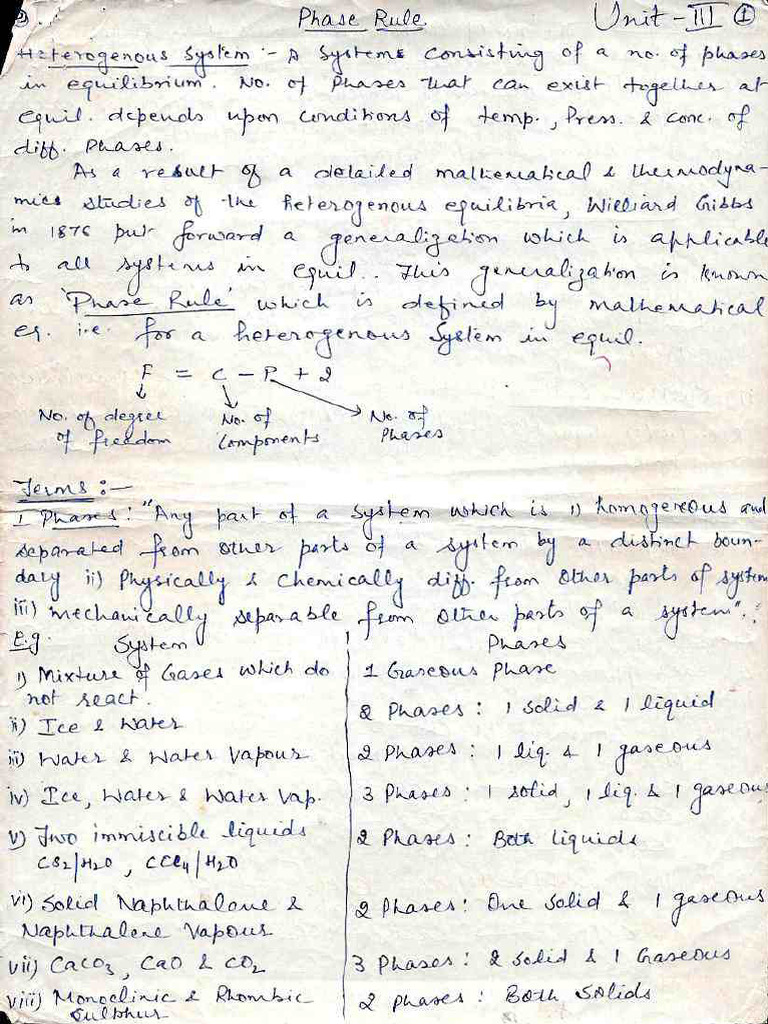 Phase Rule Unit-III ①
Heterogenous System :- A Systems consisting of a no. of phases
in equilibrium. No. of Phases that can exist together at
equil. depends upon conditions of temp., Press. & conc. of
diff. Phases.
As a result of a detailed mathematical & thermodyna-
mics studies of the heterogenous equilibria, Williard Gibbs
in 1876 put forward a generalization which is applicable
to all systems in equil.. This generalization is known
as 'Phase Rule' which is defined by mathematical
eq. i.e. for a heterogenous System in equil.
F = C - P + 2
No. of degree of freedom
No. of Components
No. of Phases
Terms :-
1 Phases : "Any part of a system which is i) homogeneous and
separated from other parts of a system by a distinct boun-
dary ii) Physically & Chemically diff. from other parts of system
iii) mechanically separable from other parts of a system".
E.g. System Phases
i) Mixture of Gases which do 1 Gaseous Phase
not react.
ii) Ice & Water 2 Phases : 1 solid & 1 liquid
iii) Water & Water Vapour 2 Phases : 1 liq. & 1 gaseous
iv) Ice, Water & Water Vap. 3 Phases : 1 solid, 1 liq. & 1 gaseous
v) Two immiscible liquids 2 Phases : Both liquids
CS2/H2O , CCl4/H2O
vi) Solid Naphthalene & 2 Phases : One solid & 1 gaseous
Naphthalene Vapour
vii) CaCO3, CaO & CO2 3 Phases : 2 solid & 1 Gaseous
viii) Monoclinic & Rhombic 2 phases : Both Solids
Sulphur